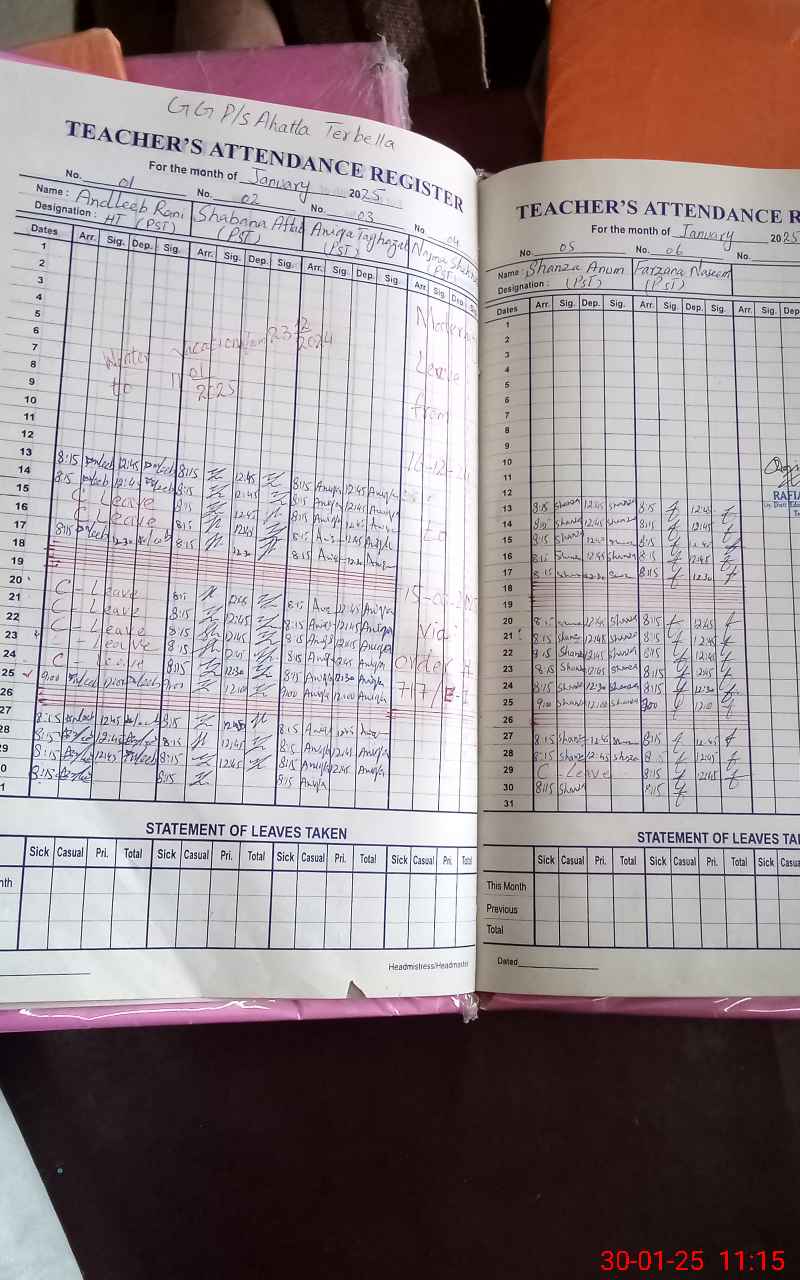 GGP/S Ahatta Terbella
TEACHER'S ATTENDANCE REGISTER
For the month of January 2025
No. 01 No. 02 No. 03 No. 04
Name: Andleeb Rani Shabana Aniqa Najma
Designation: HT (PST) (PST) (PST) (PST
Dates Arr. Sig. Dep. Sig. Arr. Sig. Dep. Sig. Arr. Sig. Dep. Sig. Arr. Sig. Dep.
1
2
3
4
5
6
7
8
9
10
11
12
Winter vacation from 23 12/2024
to 11 01/2025
Leave
from
to
order #
717/E-I
13 8:15 12:45 8:15 12:45 8:15 Aniqa 12:45 Aniqa
14 8:15 12:45 8:15 12:45 8:15 Aniqa 12:45 Aniqa
15 C-Leave 8:15 12:45 8:15 Aniqa 12:45 Aniqa
16 C-Leave 8:15 12:45 8:15 12:45 Aniqa
17 8:15 12:30 8:15 12:30 8:15 12:30 Aniqa
18
19
20 C-Leave 8:15 12:45 8:15 12:45 Aniqa
21 C-Leave 8:15 12:45 8:15 12:45 Aniqa
22 C-Leave 8:15 12:45 8:15 Aniqa 12:45 Aniqa
23 C-Leave 8:15 12:45 8:15 12:45 Aniqa
24 C-Leave 8:15 12:30 8:15 Aniqa 12:30 Aniqa
25 9:00 12:00 9:00 12:00 9:00 Aniqa 12:00 Aniqa
26
27 8:15 12:45 8:15 8:15 Aniqa
28 8:15 12:45 8:15 12:45 8:15 Aniqa 12:45 Aniqa
29 8:15 12:45 8:15 12:45 8:15 Aniqa 12:45 Aniqa
0 8:15 8:15 8:15 Aniqa
1
STATEMENT OF LEAVES TAKEN
Sick Casual Pri. Total Sick Casual Pri. Total Sick Casual Pri. Total Sick Casual Pri. Total
nth
Headmistress/Headmaster
TEACHER'S ATTENDANCE R
For the month of January 2025
No. 05 No. 06 No.
Name: Shanza Anum Farzana Naseem
Designation: (PST) (PST)
Dates Arr. Sig. Dep. Sig. Arr. Sig. Dep. Sig. Arr. Sig. Dep
1
2
3
4
5
6
7
8
9
10
11
12
RAFIA
13 8:15 Shanza 12:45 Shanza 8:15 12:45
14 8:15 Shanza 12:45 Shanza 8:15 12:45
15 8:15 Shanza 12:45 8:15 12:45
16 8:15 12:45 Shanza 8:15 12:45
17 8:15 Shanza 12:30 8:15 12:30
18
19
20 8:15 12:45 Shanza 8:15 12:45
21 8:15 Shanza 12:45 Shanza 8:15 12:45
22 8:15 Shanza 12:45 Shanza 8:15 12:45
23 8:15 Shanza 12:45 Shanza 8:15 12:45
24 8:15 Shanza 12:30 Shanza 8:15 12:30
25 9:00 Shanza 12:00 Shanza 9:00 12:0
26
27 8:15 Shanza 12:45 8:15 12:45
28 8:15 Shanza 12:45 Shanza 8:15 12:45
29 C-Leave 8:15 12:45
30 8:15 Shanza 8:15
31
STATEMENT OF LEAVES TA
Sick Casual Pri. Total Sick Casual Pri. Total Sick Cas
This Month
Previous
Total
Dated
30-01-25 11:15